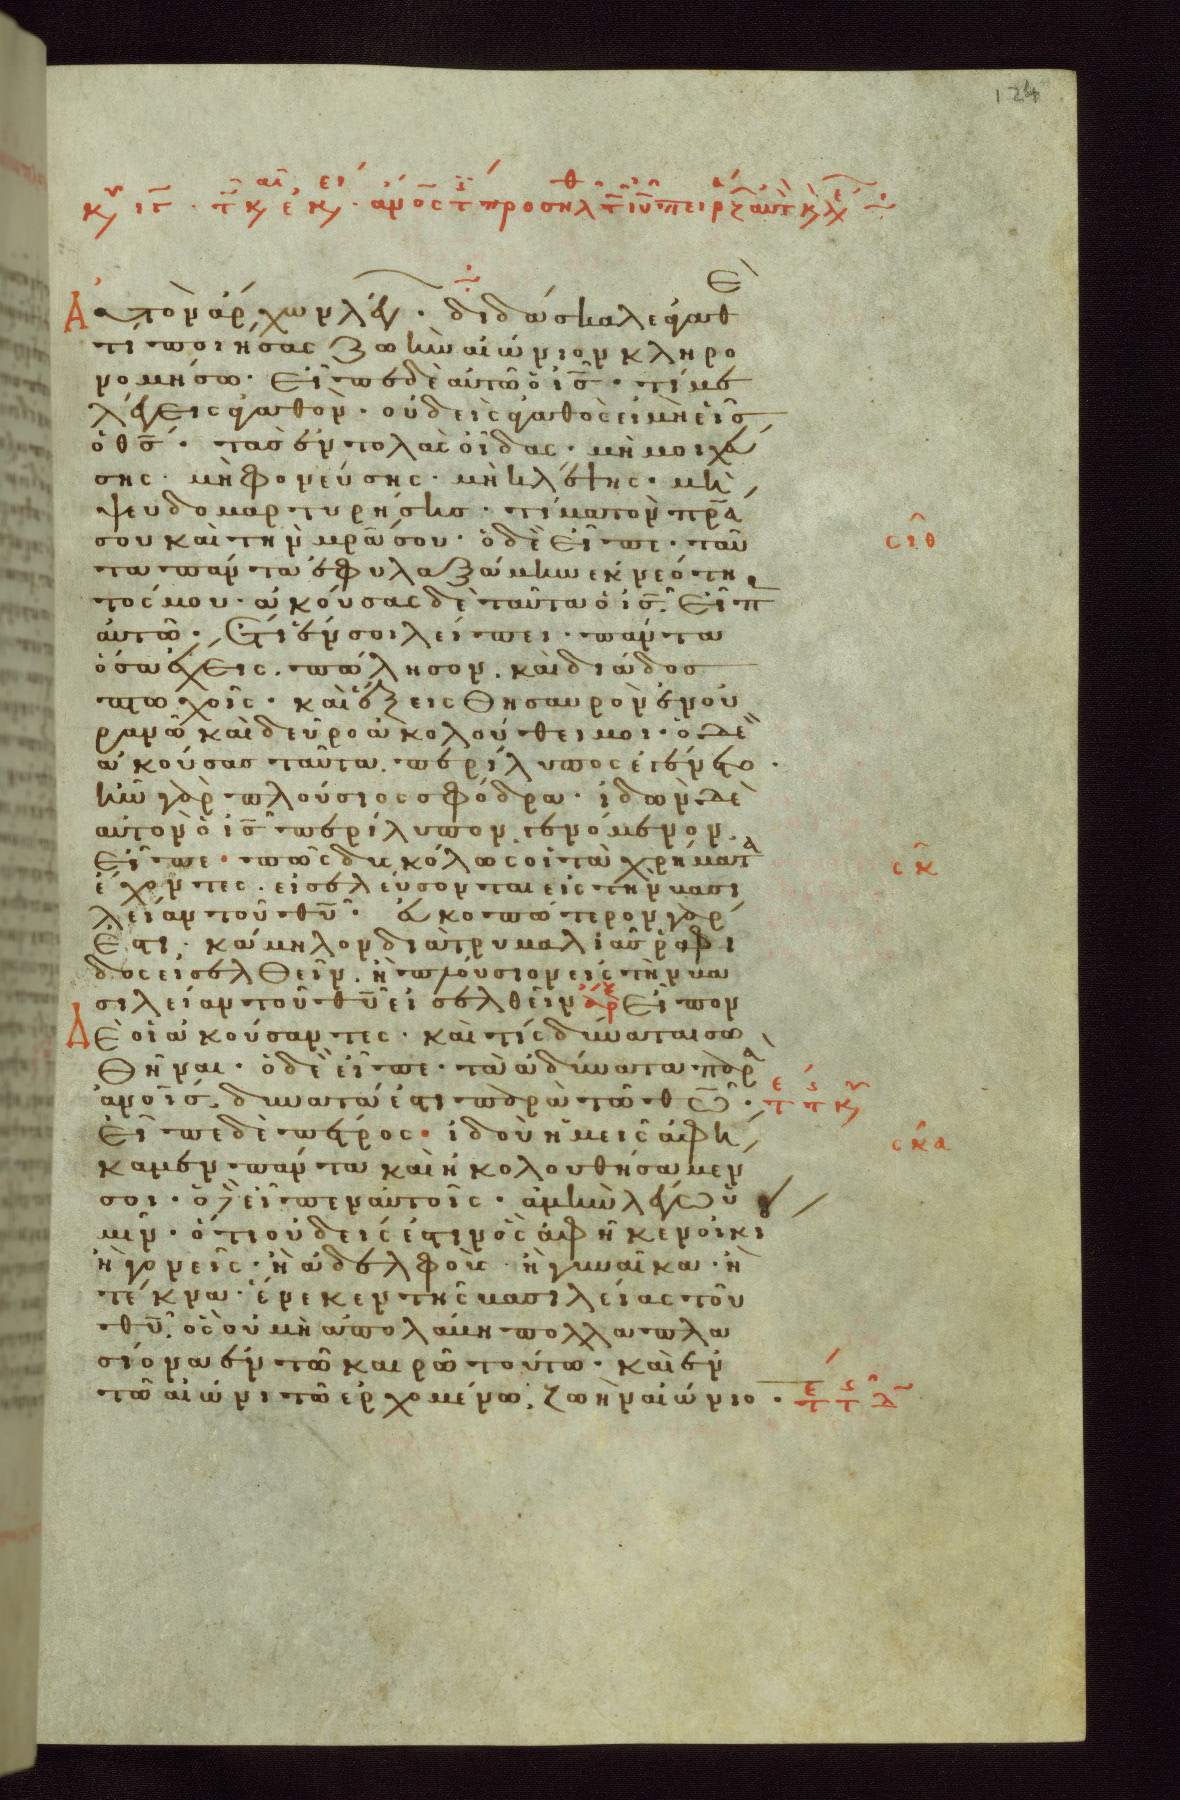 124
ατὸν ἄρχων λέγων · διδάσκαλε ἀγαθὲ
τί ποιήσας ζωὴν αἰώνιον κληρο
νομήσω · εἶπε δὲ αὐτῶ ὁ ι̅ς̅ · τί με
λέγεις ἀγαθόν · οὐδεὶς ἀγαθὸς εἰ μὴ εἷς
ὁ θ̅ς̅ · τὰς ἐντολὰς οἶδας · μὴ μοιχεύ
σης · μὴ φονεύσης · μὴ κλέψης · μὴ
ψευδομαρτυρήσης · τίμα τὸν π̅ρ̅α̅
σου καὶ τὴν μ̅ρ̅α̅ σου · ὁ δὲ εἶπε · ταῦ
σιθ
τα πάντα ἐφυλαξάμην ἐκ νεότη
τός μου · ἀκούσας δὲ ταῦτα ὁ ι̅ς̅ · εἶπ
αὐτῶ · ἔτι ἕν σοι λείπει · πάντα
ὅσα ἔχεις · πώλησον · καὶ διάδος
πτωχοῖς · καὶ ἕξεις θησαυρὸν ἐν οὐ
ρανῶ καὶ δεῦρο ἀκολούθει μοι · ὁ δὲ
ἀκούσας ταῦτα περίλυπος ἐγένετο ·
ἦν γὰρ πλούσιος σφόδρα · ἰδὼν δὲ
αὐτὸν ὁ ι̅ς̅ περίλυπον γενόμενον
εἶπε · πῶς δυσκόλως οἱ τὰ χρήματα
σκ
ἔχοντες · εἰσελεύσονται εἰς τὴν βασι
λείαν τοῦ θ̅υ̅ · εὐκοπώτερον γάρ
ἐστι · κάμηλον διὰ τρυμαλιᾶς ῥαφί
δος εἰσελθεῖν · ἢ πλούσιον εἰς τὴν βα
σιλείαν τοῦ θ̅υ̅ εἰσελθεῖν εἶπον
Δὲ οἱ ἀκούσαντες · καὶ τίς δύναται σω
θῆναι · ὁ δὲ εἶπε · τὰ ἀδύνατα παρὰ
ἀνοις δυνατά ἐστι παρὰ τῶ θ̅ω̅ ·
εἶπε δὲ πέτρος · ἰδοὺ ἡμεῖς ἀφή
σκα
καμεν πάντα καὶ ἠκολουθήσαμέν
σοι · ὁ δὲ εἶπεν αὐτοῖς · ἀμὴν λέγω ὑ
μῖν · ὅτι οὐδείς ἐστιν ὃς ἀφῆκεν οἰκί
ἢ γονεῖς · ἢ ἀδελφοὺς · ἢ γυναῖκα · ἢ
τέκνα · ἕνεκεν τῆς βασιλείας τοῦ
θ̅υ̅ · ὃς οὐ μὴ ἀπολάβη πολλαπλα
σίονα ἐν τῶ καιρῶ τούτω · καὶ ἐν
τῶ αἰῶνι τῶ ἐρχομένω ζωὴν αἰώνιο ·